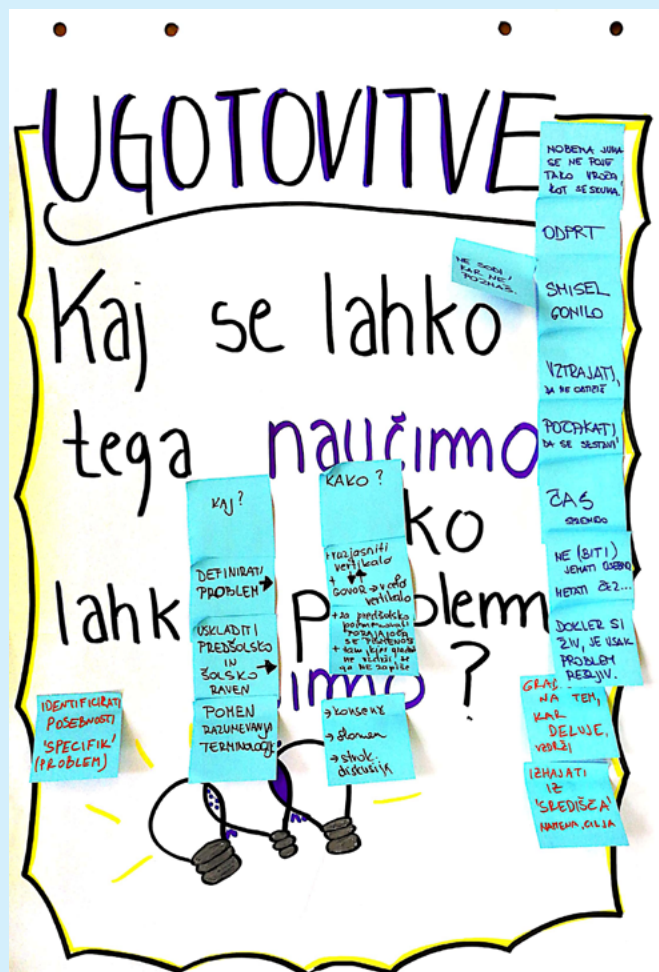 UGOTOVITVE
Kaj se lahko
tega naučimo
ko
lahk p oblem
imo ?
NE SODI,
KAR NE
POZNAŠ.
NOBENA JUHA
SE NE POJE
TAKO VROČA,
KOT SE SKUHA.
ODPRT
SMISEL
GONILO
VZTRAJATI,
DA NE
POČAKATI
DA SE SESTAVI
ČAS
NE (BITI)
JEMATI OSEBNO
METATI ČEZ...
DOKLER SI
ŽIV, JE VSAK
PROBLEM
REŠLJIV.
NA TEM,
KAR
DELUJE,
VZDRŽI
IZHAJATI
IZ
'SREDIŠČA'
NAMENA, CILJA
KAJ?
DEFINIRATI
PROBLEM
USKLADITI
PREDŠOLSKO
IN
ŠOLSKO
RAVEN
POMEN
RAZUMEVANJA
TERMINOLOGIJE
KAKO ?
+ razjasniti
vertikalo
+
GOVOR → v celo
vertikalo
+ za predšolsko
PORAJAJOČA
SE PISMENOST
+ tam, kjer
ne vzdrži, se
ga ne zapiše
→ konsenz
→ strok.
diskusija
IDENTIFICIRATI
POSEBNOSTI
'SPECIFIK'
(PROBLEM)